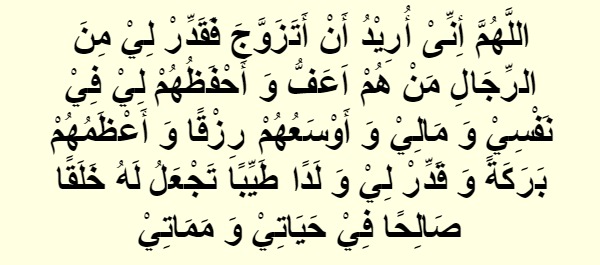 اللَّهُمَّ أِنِّىْ أُرِيْدُ أَنْ أَتَزَوَّجَ فَقَدِّرْ لِيْ مِنَ
الرِّجَالِ مَنْ هُمْ اَعَفُّ وَ أَحْفَظُهُمْ لِيْ فِيْ
نَفْسِيْ وَ مَالِيْ وَ أَوْسَعُهُمْ رِزْقًا وَ أَعْظَمُهُمْ
بَرَكَةً وَ قَدِّرْ لِيْ وَ لَدًا طَيِّبًا تَجْعَلُ لَهُ خَلَقًا
صَالِحًا فِيْ حَيَاتِيْ وَ مَمَاتِيْ